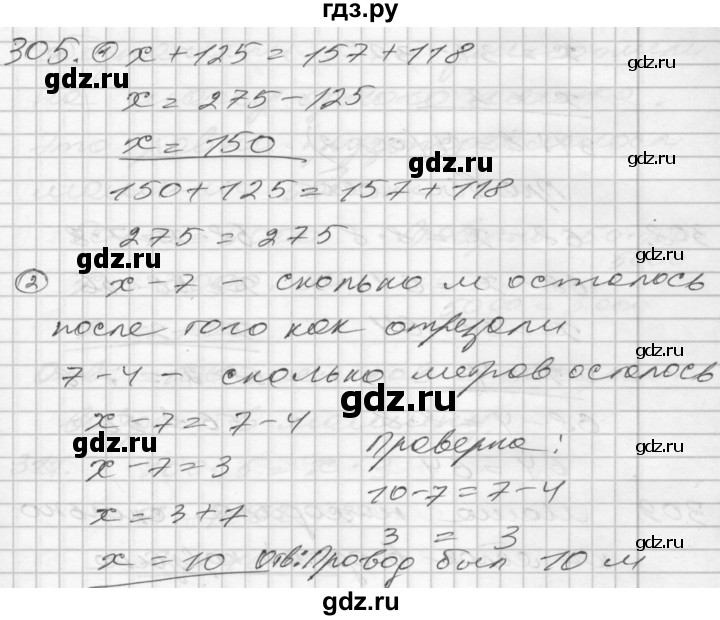 гдз.ру
305. ① x + 125 = 157 + 118
gdz.ru
x = 275 - 125
x = 150
gdz.ru
gdz.ru
150 + 125 = 157 + 118
275 = 275
gdz.ru
gdz.ru
② x - 7 - сколько м осталось
после того как отрезали
gdz.ru
7 - 4 - сколько метров осталось
gdz.ru
x - 7 = 7 - 4
gdz.ru
Проверка:
gdz.ru
x - 7 = 3
10 - 7 = 7 - 4
x = 3 + 7
3 = 3
gdz.ru
x = 10 Отв: Провод был 10 м
gdz.ru